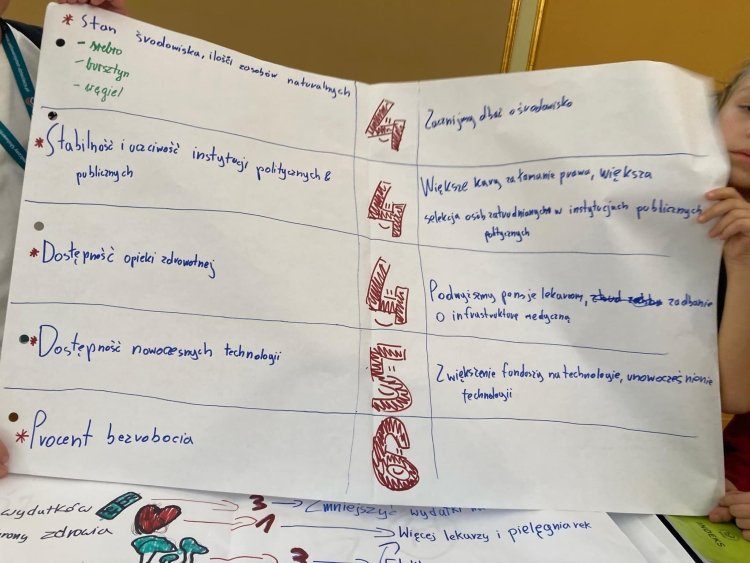 * Stan środowiska, ilości zasobów naturalnych
- srebro
- bursztyn
- węgiel
4
Zacznijmy dbać o środowisko
* Stabilność i uczciwość instytucji politycznych &
publicznych
4
Większe kary za łamanie prawa, większa
selekcja osób zatrudnionych w instytucjach publicznych
politycznych
* Dostępność opieki zdrowotnej
4
Podwyższmy pensje lekarzom, zadbanie
o infrastrukturę medyczną
* Dostępność nowoczesnych technologii
5
Zwiększenie funduszy na technologie, unowocześnienie
technologii
* Procent bezrobocia
6
wydatków 3 Zmniejszyć wydatki
rony zdrowia 1 Więcej lekarzy i pielęgniarek
3